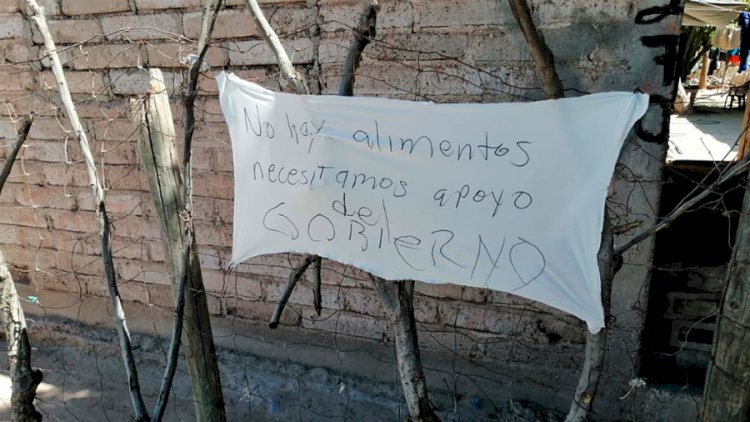 No hay alimentos
necesitamos apoyo
del
GOBIERNO